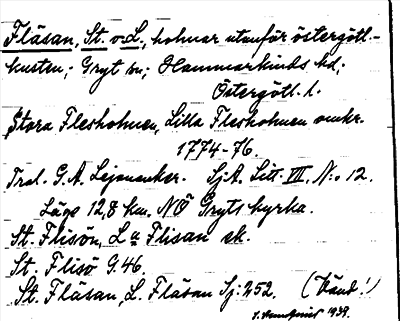 Fläsan, St. o. L., holmar utanför östergötl.-
kusten; Gryt sn; Hammarkinds hd;
Östergötl. l.
Stora Flesholmen, Lilla Flesholmen omkr.
1774-76.
Tral. G.A. Lejonanker. SjA. Litt. VII, N:o 12.
Läge 12,8 km. NÖ Gryts kyrka.
St. Flisön, La Flisan sk.
St. Flisö G.46.
St. Fläsan, L. Fläsan Sj:252. (Vänd!)
1939.